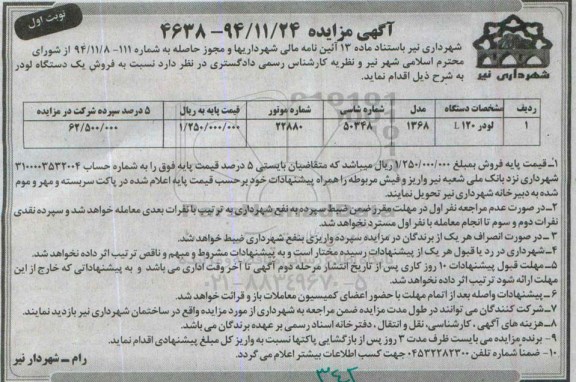 نوبت اول
آگهی مزایده ۹۴/۱۱/۲۴-۴۶۳۸
شهرداری نیر
شهرداری نیر باستناد ماده ۱۳ آئین نامه مالی شهرداریها و مجوز حاصله به شماره ۱۱۱-۹۴/۱۱/۸ از شورای
محترم اسلامی شهر نیر و نظریه کارشناس رسمی دادگستری در نظر دارد نسبت به فروش یک دستگاه لودر
به شرح ذیل اقدام نماید.
ردیف مشخصات دستگاه مدل شماره شاسی شماره موتور قیمت پایه به ریال ۵ درصد سپرده شرکت در مزایده
۱ لودر L۱۲۰ ۱۳۶۸ ۵۰۳۴۸ ۲۲۸۸۰ ۱/۲۵۰/۰۰۰/۰۰۰ ۶۲/۵۰۰/۰۰۰
۱-قیمت پایه فروش بمبلغ ۱/۲۵۰/۰۰۰/۰۰۰ ریال میباشد که متقاضیان بایستی ۵ درصد قیمت پایه فوق را به شماره حساب ۳۱۰۰۰۰۳۵۳۲۰۰۴
شهرداری نزد بانک ملی شعبه نیر واریز و فیش مربوطه را همراه پیشنهادات خود بر حسب قیمت پایه اعلام شده در پاکت سربسته و مهر و موم
شده به دبیرخانه شهرداری نیر تحویل نمایند.
۲-در صورت عدم مراجعه نفر اول در مهلت مقرر ضمن ضبط سپرده به نفع شهرداری به ترتیب با نفرات بعدی معامله خواهد شد و سپرده نقدی
نفرات دوم و سوم تا انجام معامله با نفر اول مسترد نخواهد شد.
۳-در صورت انصراف هر یک از برندگان در مزایده سپرده واریزی بنفع شهرداری ضبط خواهد شد.
۴-شهرداری در رد یا قبول هر یک از پیشنهادات رسیده مختار است و به پیشنهادات مشروط و مبهم و ناقص ترتیب اثر داده نخواهد شد.
۵-مهلت قبول پیشنهادات ۱۰ روز کاری پس از تاریخ انتشار مرحله دوم آگهی تا آخر وقت اداری می باشد و به پیشنهاداتی که خارج از این
مهلت ارائه شود ترتیب اثر داده نخواهد شد.
۶-پیشنهادات واصله بعد از اتمام مهلت با حضور اعضای کمیسیون معاملات باز و قرائت خواهد شد.
۷-شرکت کنندگان می توانند در طول مدت مزایده ضمن مراجعه به شهرداری از مورد مزایده واقع در ساختمان شهرداری نیر بازدید نمایند.
۸-هزینه های آگهی، کارشناسی، نقل و انتقال، دفترخانه اسناد رسمی بر عهده برندگان می باشد.
۹- برنده مزایده می بایست ظرف مدت ۳ روز پس از بازگشایی پاکتها نسبت به واریز کل مبلغ پیشنهادی اقدام نماید.
۱۰- ضمنا شماره تلفن ۰۴۵۳۲۲۸۲۳۰۰ جهت کسب اطلاعات بیشتر اعلام می گردد.
رام - شهردار نیر
۳۴۲